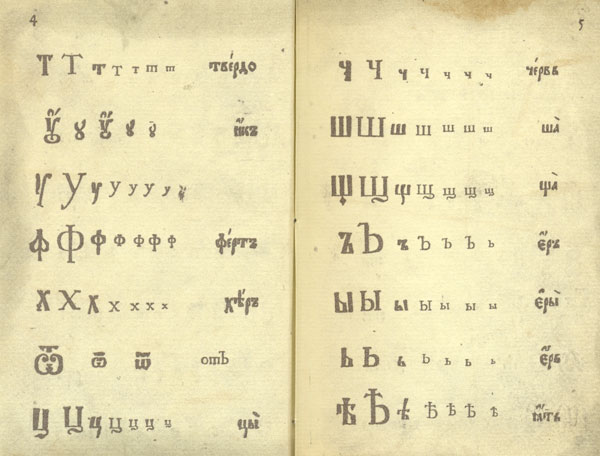 4
Т Т т т т т т тве́рдо
Ꙋ ꙋ Ꙋ ꙋ ꙋ ꙋ҆́къ
У У у у у у у у
Ф Ф ф ф ф ф ф фе́ртъ
Х Х х х х х х хѣ́ръ
Ѿ ѿ ѿ отЪ
Ц Ц ц ц ц ц ц цы̀
5
Ч Ч ч ч ч ч ч че́рвь
Ш Ш ш ш ш ш ш ша̀
Щ Щ щ щ щ щ щ ща̀
Ъ Ъ ъ ъ ъ ъ ъ е҆́ръ
Ы Ы ы ы ы ы ы е҆ры̀
Ь Ь ь ь ь ь ь е҆́рь
Ѣ Ѣ ѣ ѣ ѣ ѣ ѣ ꙗ҆́ть